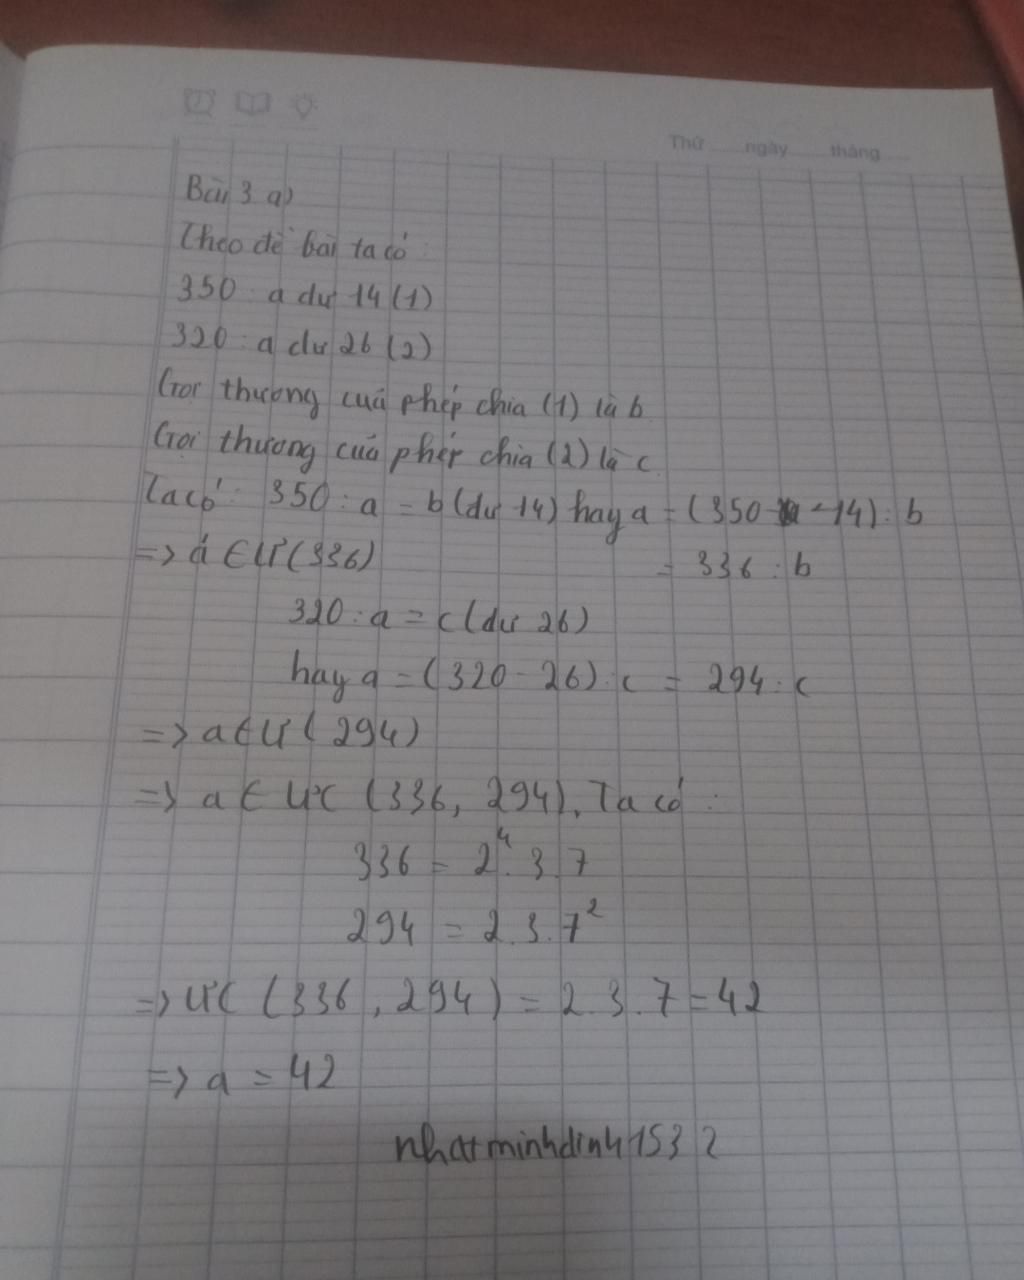 Thứ ngày tháng
Bài 3 a)
Theo đề bài ta có:
350 : a dư 14 (1)
320 : a dư 26 (2)
Gọi thương của phép chia (1) là b
Gọi thương của phép chia (2) là c.
Ta có: 350 : a = b (dư 14) hay a = (350 - 14) : b
=> a ∈ Ư (336) = 336 : b
320 : a = c (dư 26)
hay a = (320 - 26) : c = 294 : c
=> a ∈ Ư (294)
=> a ∈ ƯC (336, 294). Ta có:
336 = 2⁴. 3. 7
294 = 2. 3. 7²
=> ƯC (336, 294) = 2. 3. 7 = 42
=> a = 42
nhatminhdinh1532